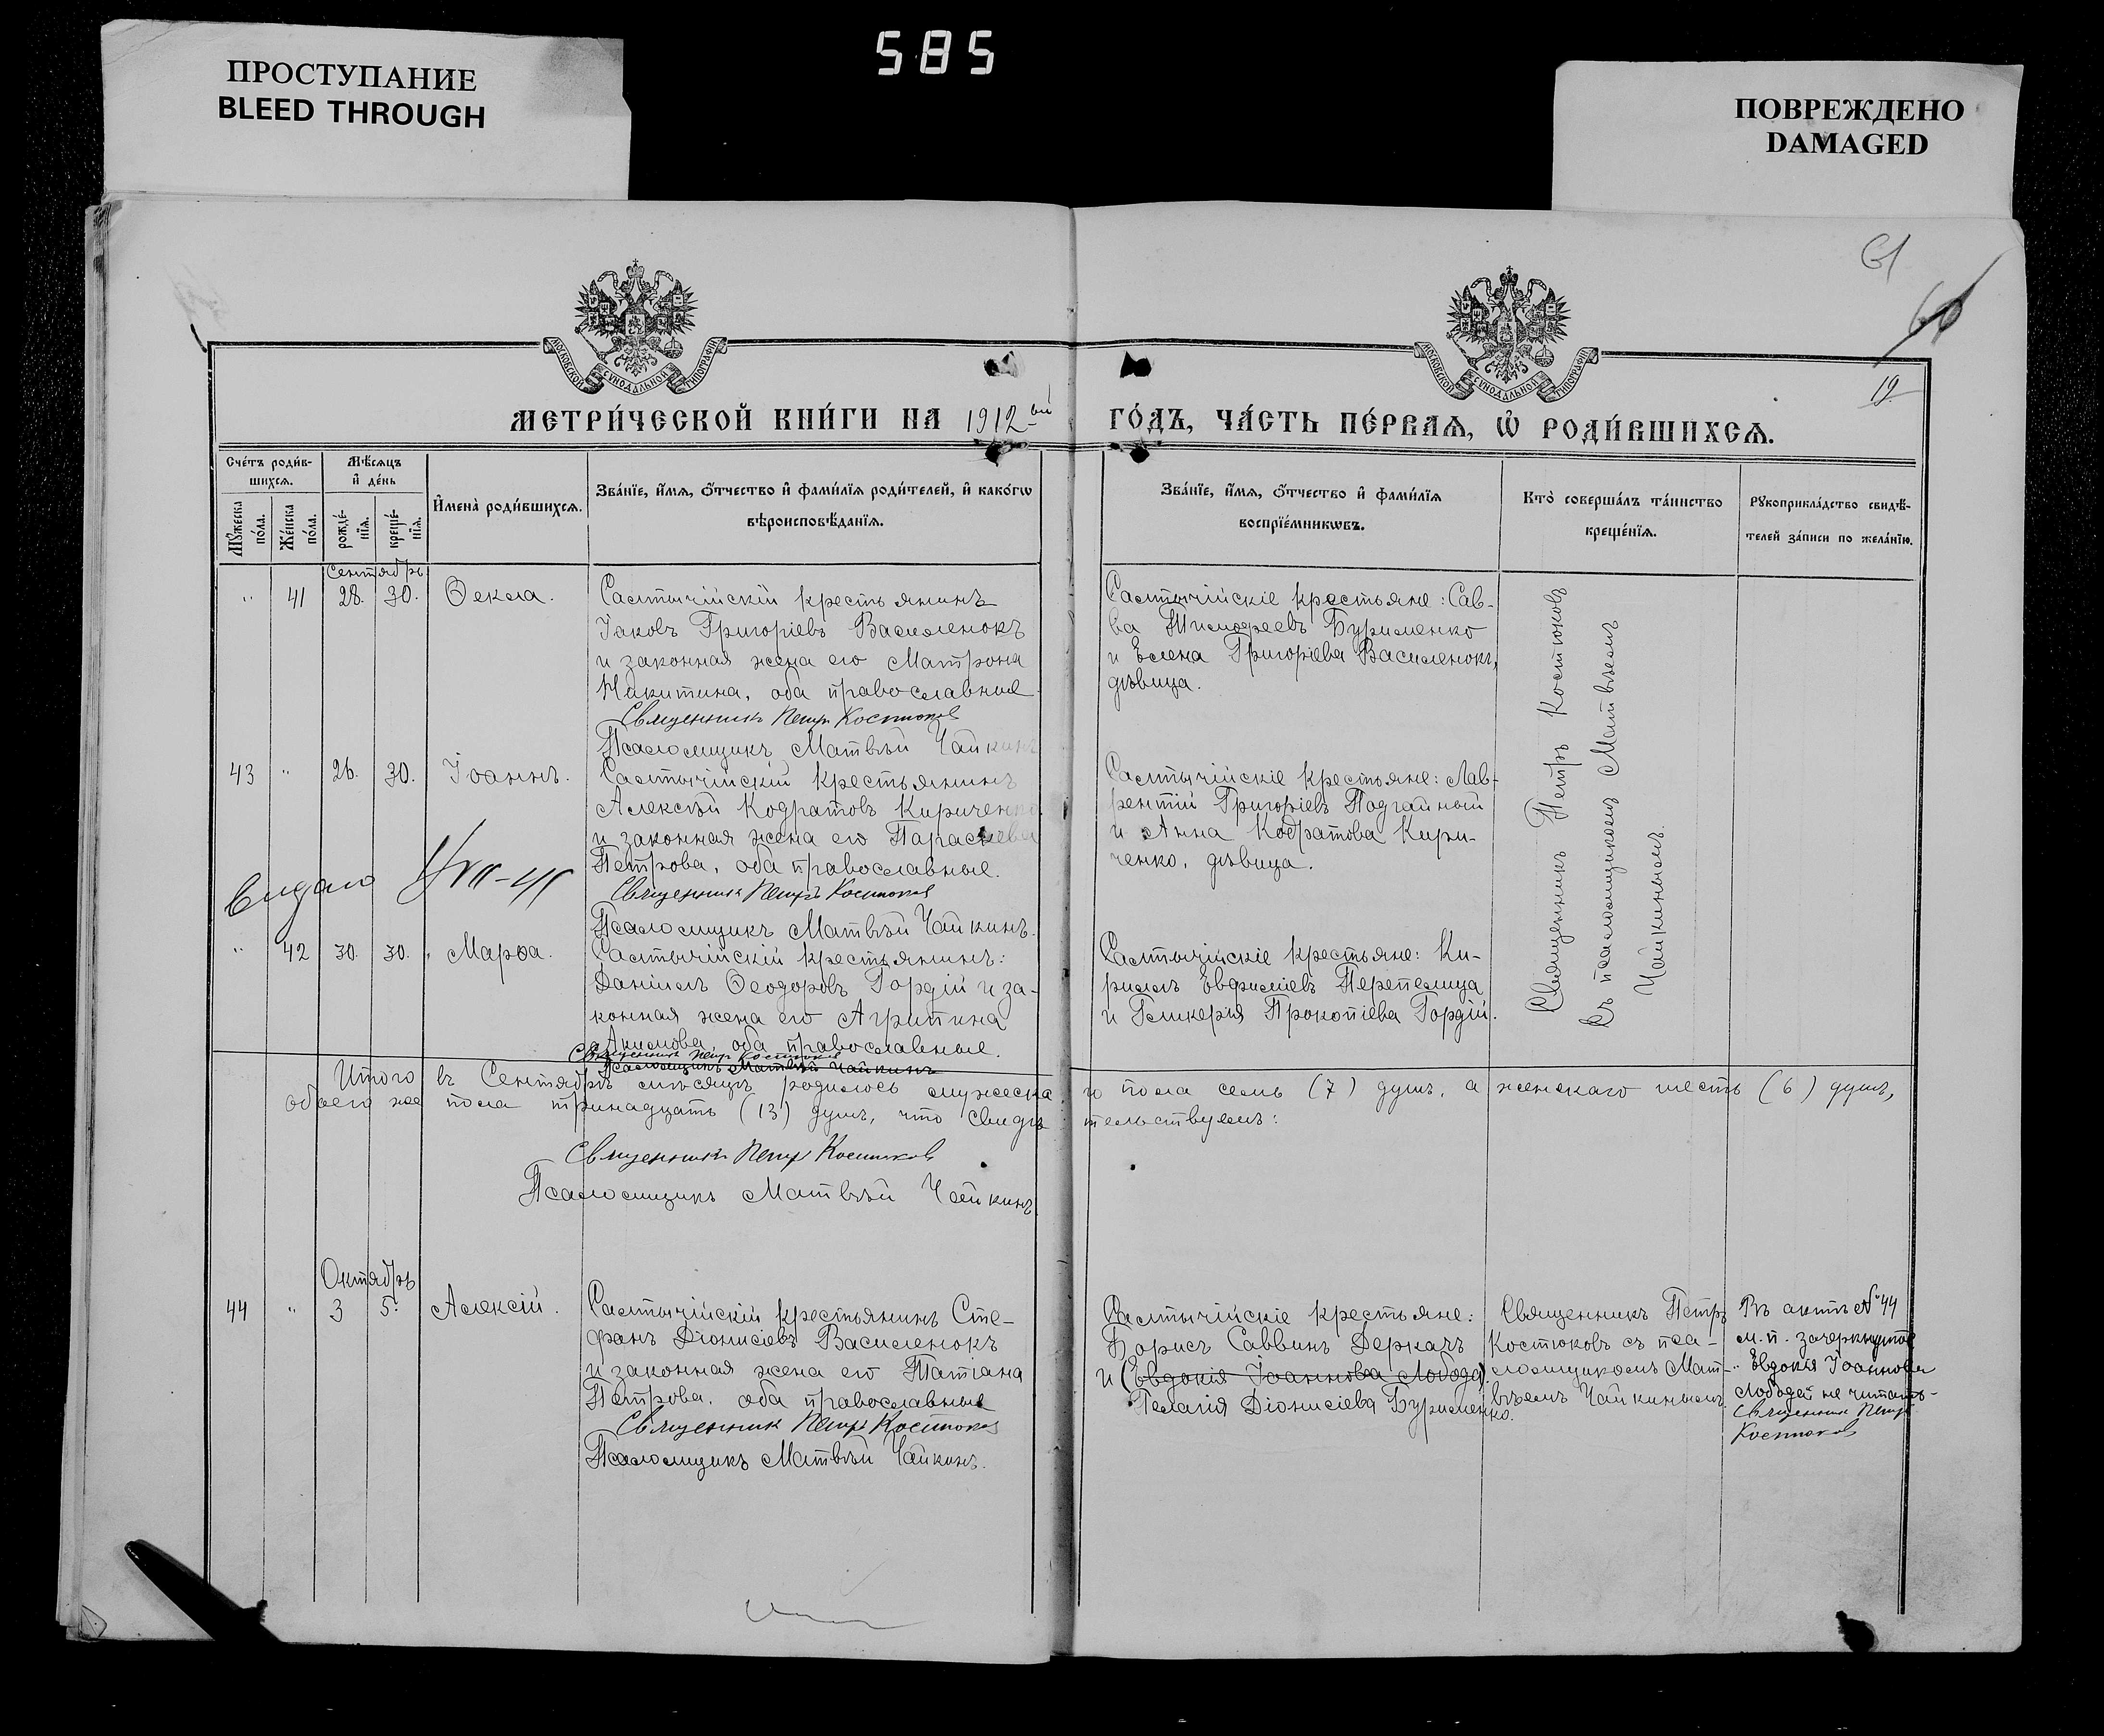 585
ПРОСТУПАНИЕ
BLEED THROUGH
ПОВРЕЖДЕНО
DAMAGED
61
60
19
МОСКОВСКОЙ СУНОДАЛЬНОЙ ТИПОГРАФІИ
МОСКОВСКОЙ СУНОДАЛЬНОЙ ТИПОГРАФІИ
МЕТРИ́ЧЕСКОЙ КНИ́ГИ НА 1912-ый ГО́ДЪ, ЧА́СТЬ ПЕ́РВАѦ, Ѡ҆ РОДИ́ВШИХСѦ.
Сче́тъ роди́в-
шихсѧ.
Мꙋ́жеска
по́ла.
Же́нска
по́ла.
Мѣ́сѧцъ
и҆ де́нь
рожде́-
нїѧ.
креще́-
нїѧ.
И҆мена̀ роди́вшихсѧ.
Зва́нїе, и҆́мѧ, ѻ҆́тчество и҆ фами́лїѧ роди́телей, и҆ како́гѡ
вѣроисповѣ́данїѧ.
Зва́нїе, и҆́мѧ, ѻ҆́тчество и҆ фами́лїѧ
воспрїе́мникѡвъ.
Кто̀ соверша́лъ та́инство
креще́нїѧ.
Рꙋкоприкла́дство свидѣ́-
телей за́писи по жела́нїю.
Сентябрь
" 41 28. 30. Ѳекла.
Салтычійскій крестьянинъ
Іаковъ Григоріевъ Василенокъ
и законная жена его Матрона
Никитина, оба православные.
Священникъ Петръ Костюковъ
Псаломщикъ Матвѣй Чайкинъ
Салтычійскіе крестьяне: Сав-
ва Тимоѳеевъ Бурименко
и Елена Григоріева Василенокъ,
дѣвица.
Священникъ Петръ Костюковъ
съ псаломщикомъ Матвѣемъ
Чайкинымъ.
43 " 26. 30. Іоаннъ.
Салтычійскій крестьянинъ
Алексѣй Кодратовъ Кириченко
и законная жена его Параскева
Петрова, оба православные.
Священникъ Петръ Костюковъ
Псаломщикъ Матвѣй Чайкинъ.
Салтычійскіе крестьяне: Лав-
рентій Григоріевъ Подгайный
и Анна Кодратова Кири-
ченко, дѣвица.
Видано
" 42 30. 30. Марѳа.
Салтычійскій крестьянинъ:
Даніилъ Ѳеодоровъ Гордій и за-
конная жена его Агрипина
Акимова, оба православные.
Священникъ Петръ Костюковъ
Псаломщикъ Матвѣй Чайкинъ
Салтычійскіе крестьяне: Ки-
риллъ Евфиміевъ Перепелица
и Гликерія Прокопіева Гордій.
Итого въ Сентябрѣ мѣсяцѣ родилось мужеска го пола семь (7) душъ, а женскаго шесть (6) душъ,
обоего же пола тринадцать (13) душъ, что свидѣ тельствуемъ:
Священникъ Петръ Костюковъ
Псаломщикъ Матвѣй Чайкинъ
Октябрь
44 " 3 5. Алексій.
Салтычійскій крестьянинъ Сте-
фанъ Діонисіевъ Василенокъ
и законная жена его Татіана
Петрова, оба православные
Священникъ Петръ Костюковъ
Псаломщикъ Матвѣй Чайкинъ.
Салтычійскіе крестьяне:
Борисъ Саввинъ Деркачъ
и (Евдокія Іоаннова Лобода).
Пелагія Діонисіева Бурименко.
Священникъ Петръ
Костюковъ съ пса-
ломщикомъ Мат-
вѣемъ Чайкинымъ.
Въ актѣ № 44
м. п. зачеркнутое
" Евдокія Іоаннова
Лобода не читать-
Священникъ Петръ
Костюковъ